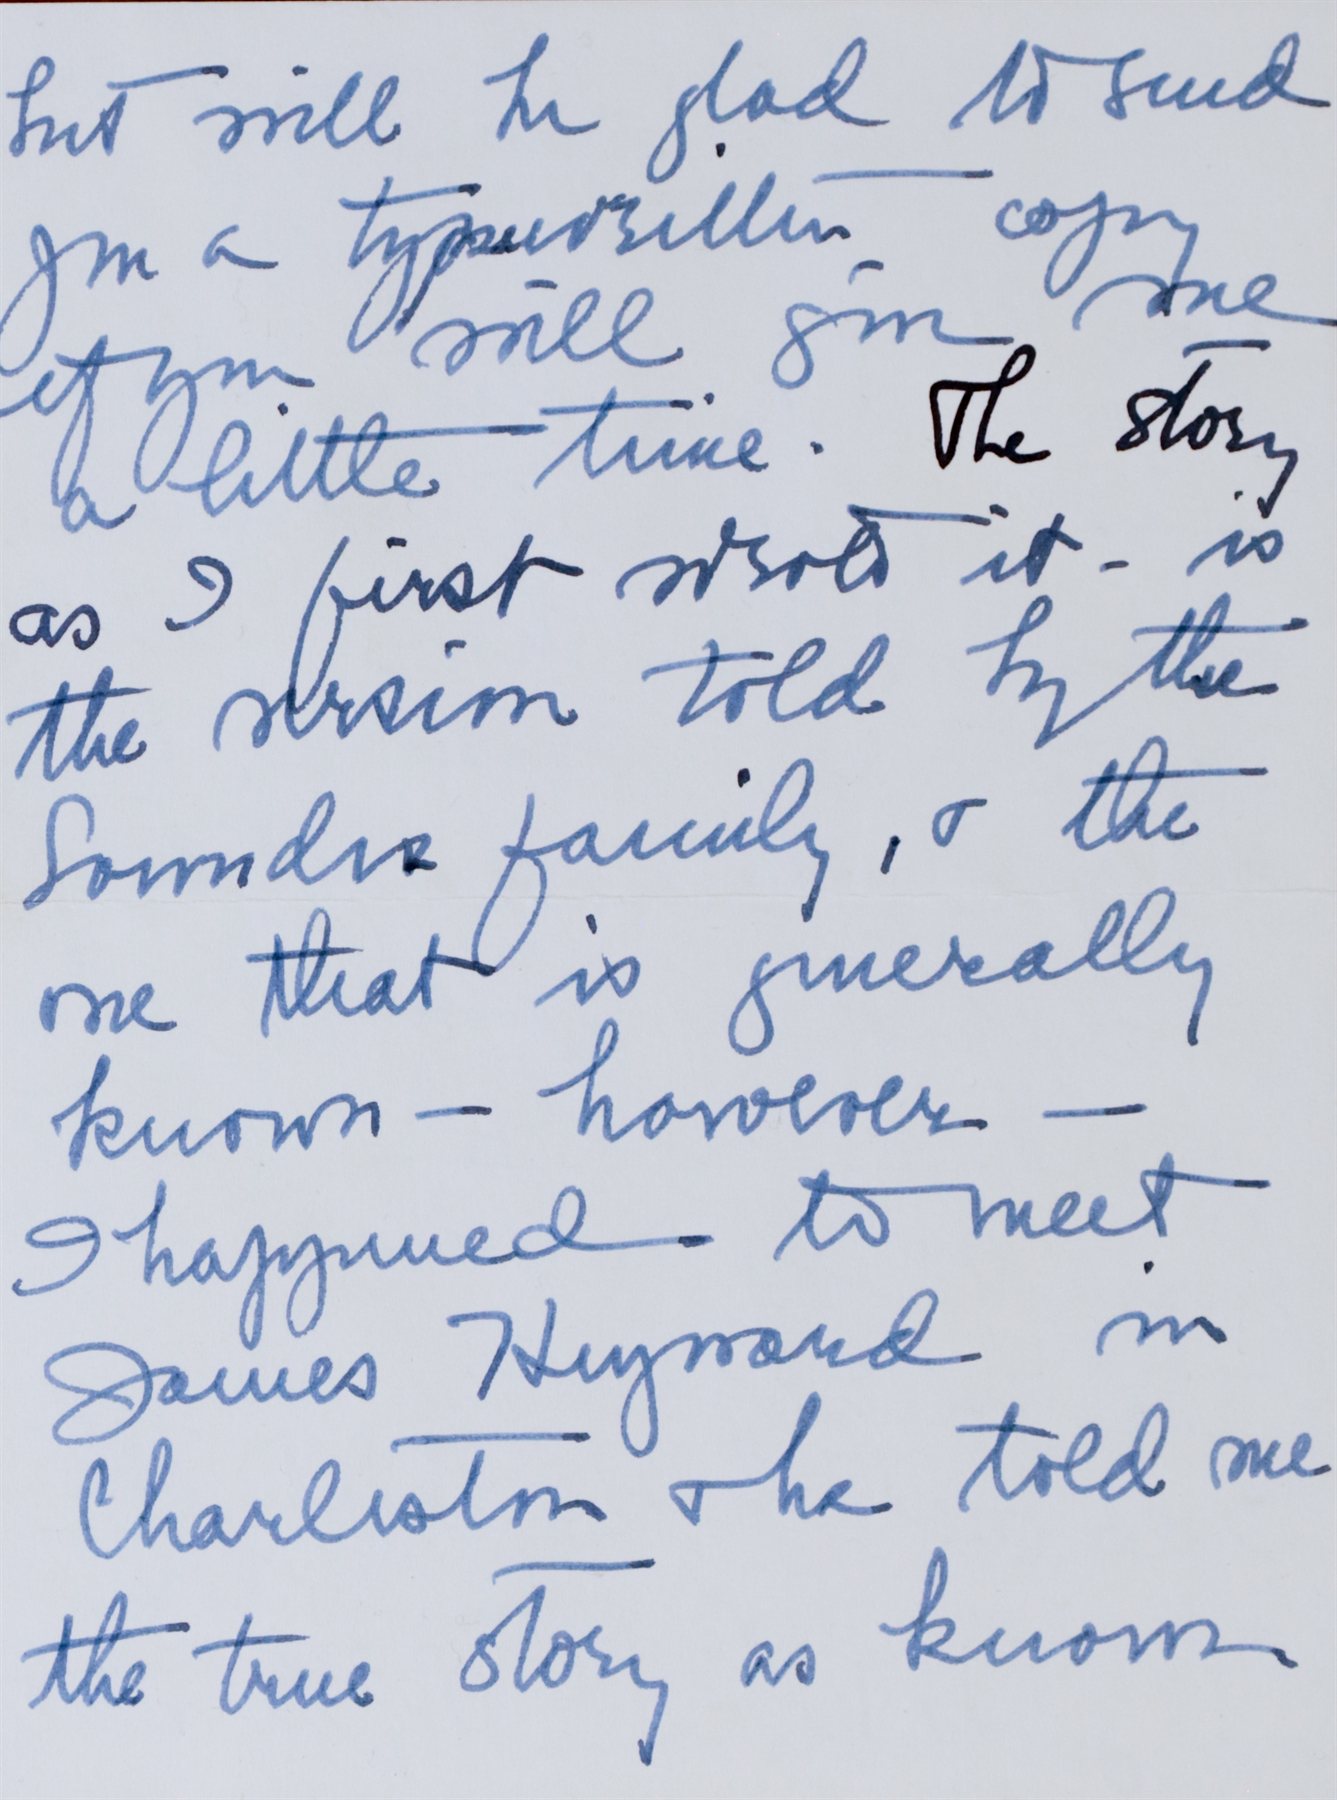 but will be glad to send
you a typewritten copy
if you will give me
a little time. The story
as I first wrote it - is
the version told by the
Sounders family, & the
one that is generally
known — however —
I happened to meet
James Heyward in
Charleston & he told me
the true story as known